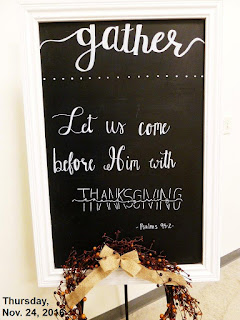 gather
Let us come
before Him with
THANKSGIVING
- Psalms 95:2 -
Thursday,
Nov. 24, 2016